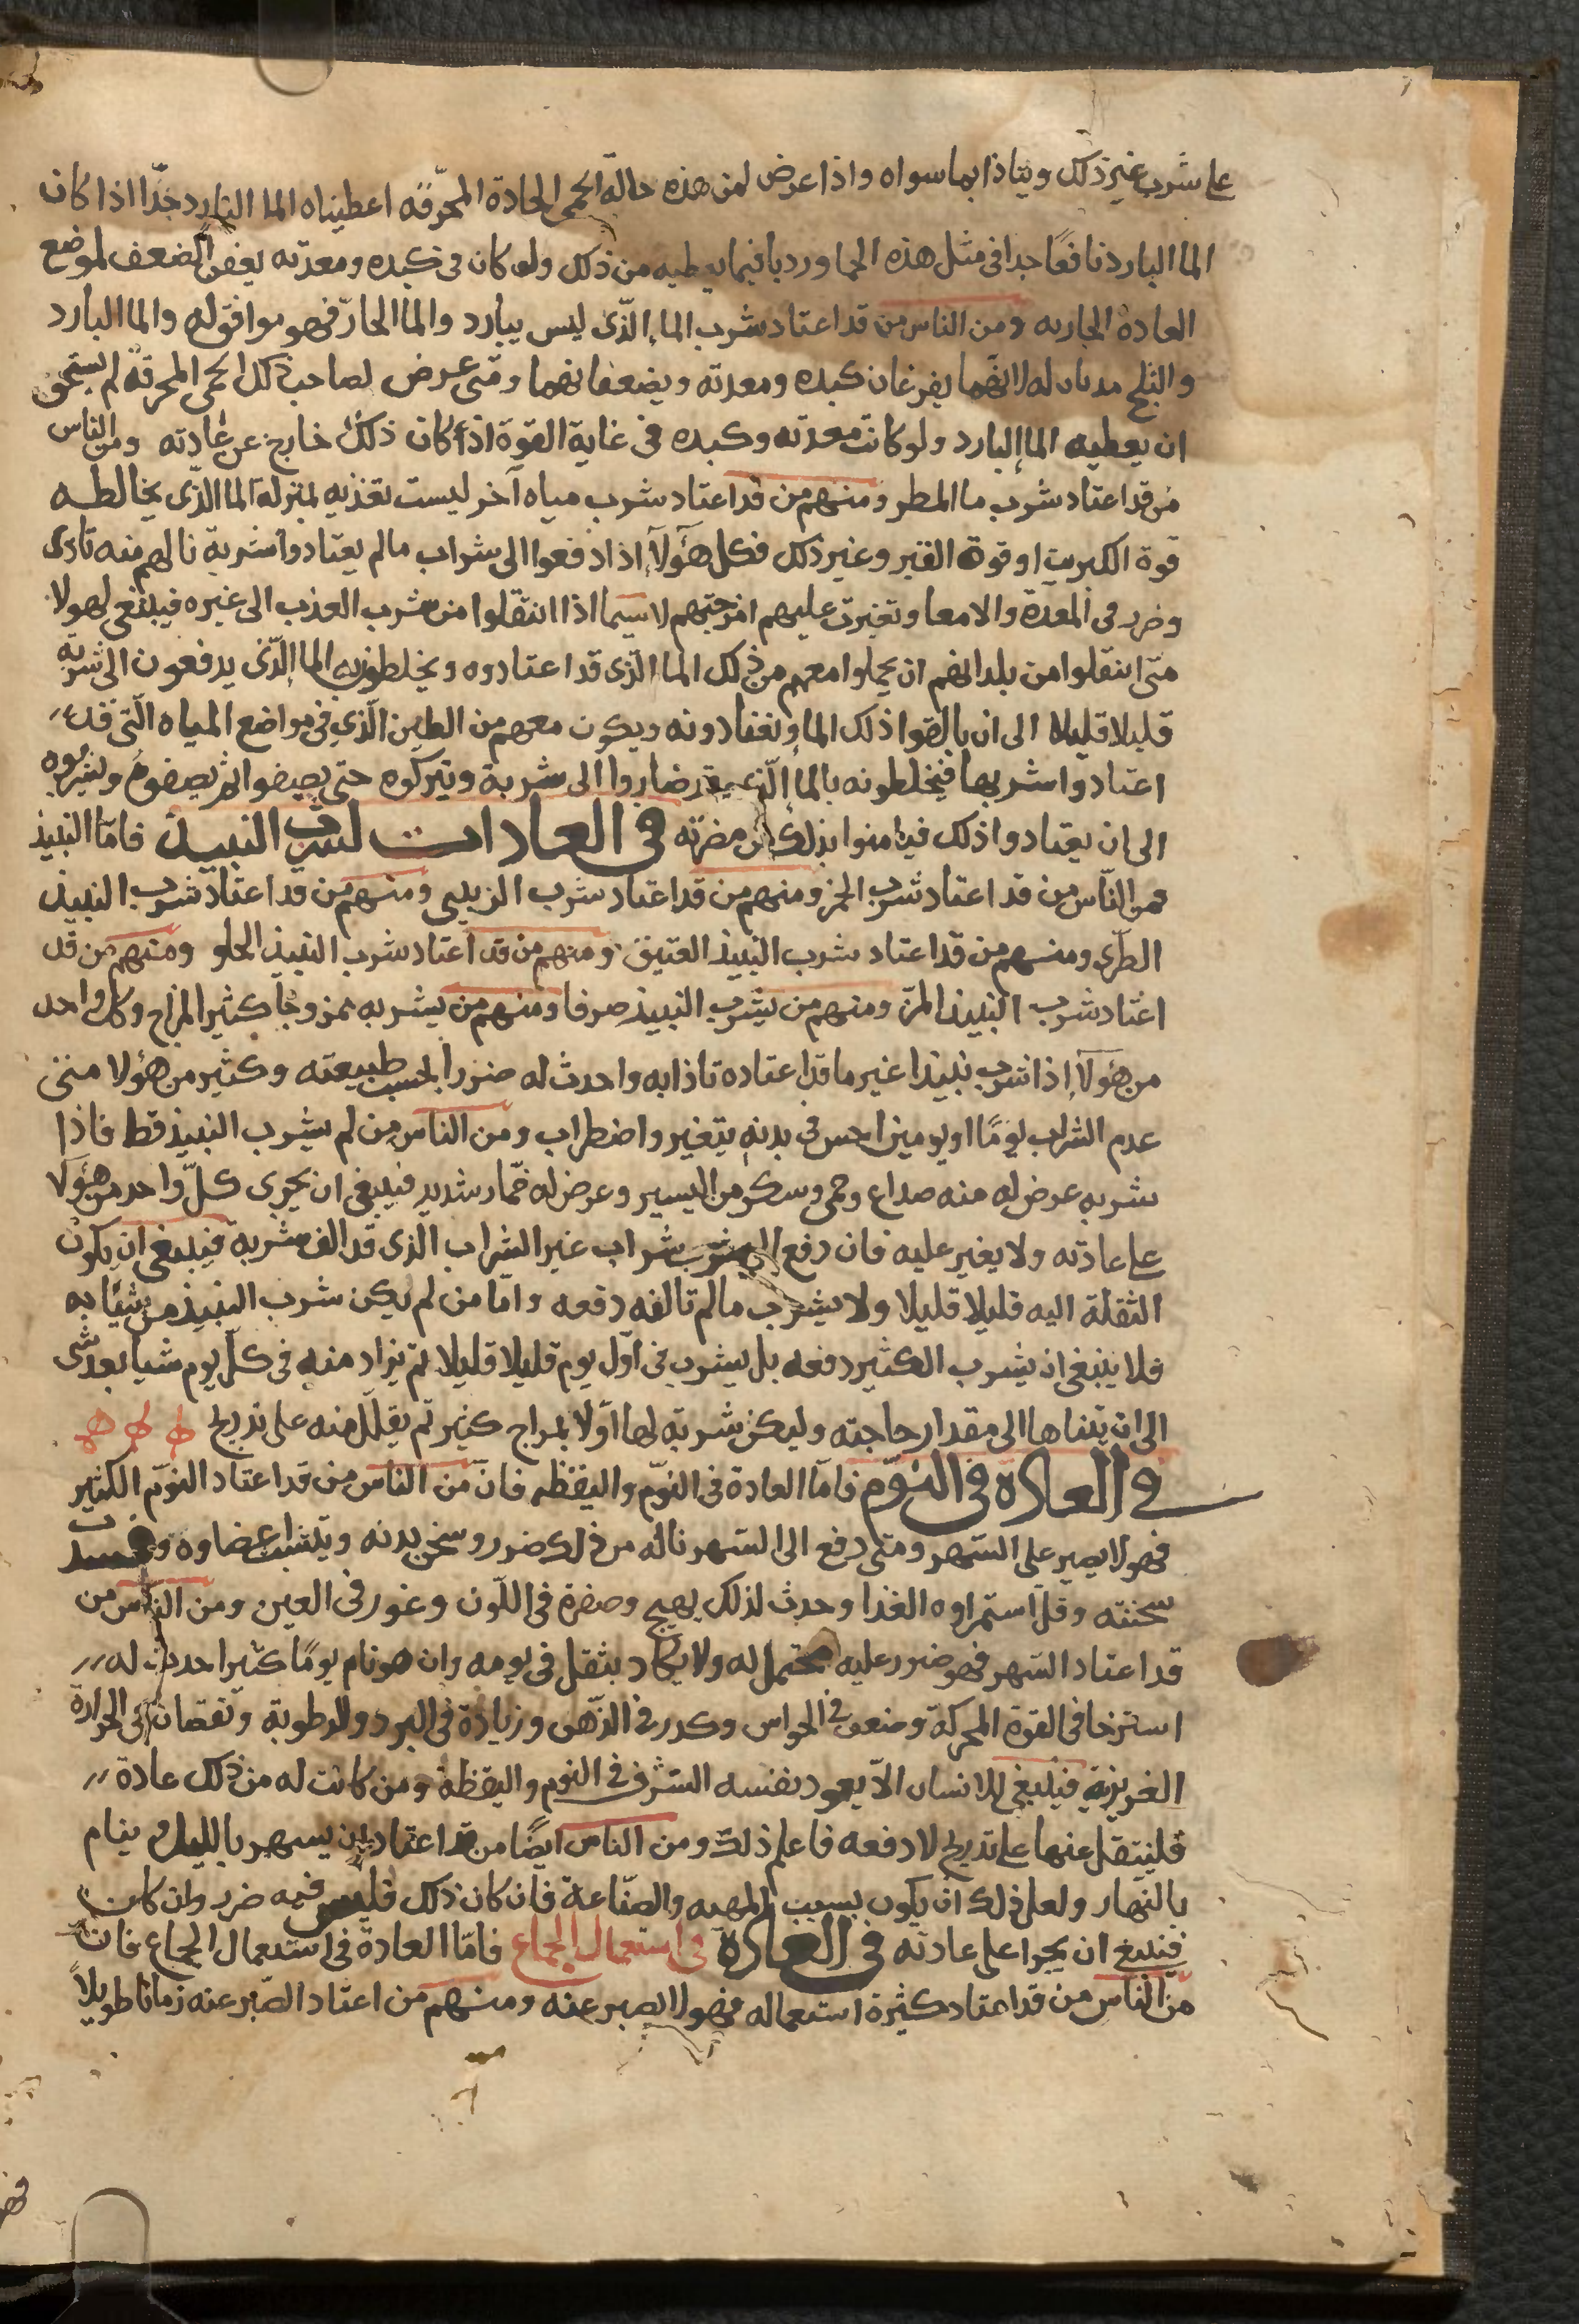 على شرب غير ذلك ويتاذا بما سواه واذا عرض لمن هذه حالة الحمى الحادة المحرقه اعطيناه الما البارد جدّا اذا كان
الما البارد نافعًا جدا في مثل هذه الحما وردبا فيما يعطيه من ذلك ولو كان في كبده ومعدته بعض الضعف لموضع
العادة الجاريه ومن الناس من قد اعتاد شرب الماء الّذى ليس ببارد والما الحارّ فهو موافق له والما البارد
والثلج له لانهما يقرعان كبده ومعدته ويضعفانهما ومتى عرض لصاحب ذلك الحمى المحرقة لم يستحق
ان يعطيه الما البارد ولو كانت معدته وكبده في غاية القوة اذا كان ذلك خارج عن عادته ومن الناس
من قد اعتاد شرب ما المطر ومنهم من قد اعتاد شرب مياه آخر ليست بعذبه بمنزلة الما الّذى يخالطه
قوة الكبريت او قوة القير وغير ذلك فكل هؤلآء اذا دفعوا الى شراب ما لم يعتادوا شربة نالهم منه تاذى
وضرر في المعدة والامعا وتغيرت عليهم امزجتهم لا سيما اذا انتقلوا من شرب العذب الى غيره فينبغى لهولا
متى انتقلوا من بلدانهم ان يحملوا معهم من ذلك الما الّذى قد اعتادوه ويخلطونه الما الّذى يدفعون الى شربه
قليلا قليلا الى ان يالفوا ذلك الما ويعتادونه ويكون معهم من الطين الّذي في مواضع المياه الّتى قد
اعتادوا شربها فيخلطونه بالما الّذى قد صاروا الى شربة ويتركوه حتى يصفوا ثم يصفوه ويشربوه
الى ان يعتادوا ذلك فيامنوا بذلك من مضرته في العادات لشرب النبيذ فامّا النبيذ
فمن النّاس من قد اعتاد شرب الخمر ومنهم من قد اعتاد شرب الزبيبى ومنهم من قد اعتاد شرب النبيذ
الطرّى ومنهم من قد اعتاد شرب النبيذ العتيق ومنهم من قد اعتاد شرب النبيذ الحلو ومنهم من قد
اعتاد شرب النبيذ المرّ ومنهم من يشرب النبيذ صرفا ومنهم من يشربه ممزوجا كثير المزاج وكل واحد
من هؤلآء اذا شرب نبيذا غير ما قد اعتاده تاذا به واحدث له ضررا بحسب طبيعته وكثير من هؤلا متى
عدم الشراب يومًا او يومين احس في بدنه بتغير واضطراب ومن الناس من لم يشرب النبيذ قط فاذا
شربه عرض له منه صداع وحمى وسكر من اليسير وعرض له خمّار شديد فينبغى ان يجرى كلّ واحد من هؤلا
على عادته ولا يغير عليه فان دفع الى شرب شراب غير الشراب الذى قد الف شربة فينبغى ان يكون
النقلة اليه قليلا قليلا ولا يشرب ما لم تالفه دفعه وامّا من لم يكن شرب النبيذ من شانه
فلا ينبغى ان يشرب الكثير دفعه بل يشرب في اوّل يوم قليلا قليلا ثم يزاد منه في كلّ يوم شيا بعد شى
الى ان يتناها الى مقدار حاجته وليكن شربته لها اوّلا بمزاج كثير ثم يقلّل منه على تدريج
في العادة في النوم فامّا العادة في النوم واليقظه فانّ من الناس من قد اعتاد النوم الكثير
فهو لا يصبر على السهر ومتى دفع الى السهر ناله من ذلك ضرر وسخن بدنه اعضاوه وفسدت
سحنته وقل استمراوه الغذا وحدث لذلك تهيج وصفرة في اللّون وغور في العين ومن النّاس من
قد اعتاد السّهر فهو ضرر عليه محتمل له ولا يكاد يثقل في يومه وان هو نام يومًا كثيرا حدث له
استرخا في القوة المحركة وضعف في الحواس وكدر في الذّهن وزيادة في البرد والرطوبة ونقصان في الحرارة
الغريزية فينبغى للانسان الّا يعود نفسه السّرف في النوم واليقظة ومن كانت له من ذلك عادة
فلينتقل عنها على تدريج لا دفعه فاعلم ذلك ومن الناس ايضًا من قد اعتاد ان يسهر بالليل و ينام
بالنّهار ولعل ذلك ان يكون بسبب المهنه والصّناعة فان كان ذلك فليس فيه ضرر وان كان
فينبغى ان يجرا على عادته في العادة في استعمال الجماع فامّا العادة في استعمال الجماع فان
من النّاس من قد اعتاد كثيرة استعماله فهو لا يصبر عنه ومنهم من اعتاد الصّبر عنه زمانا طويلاً